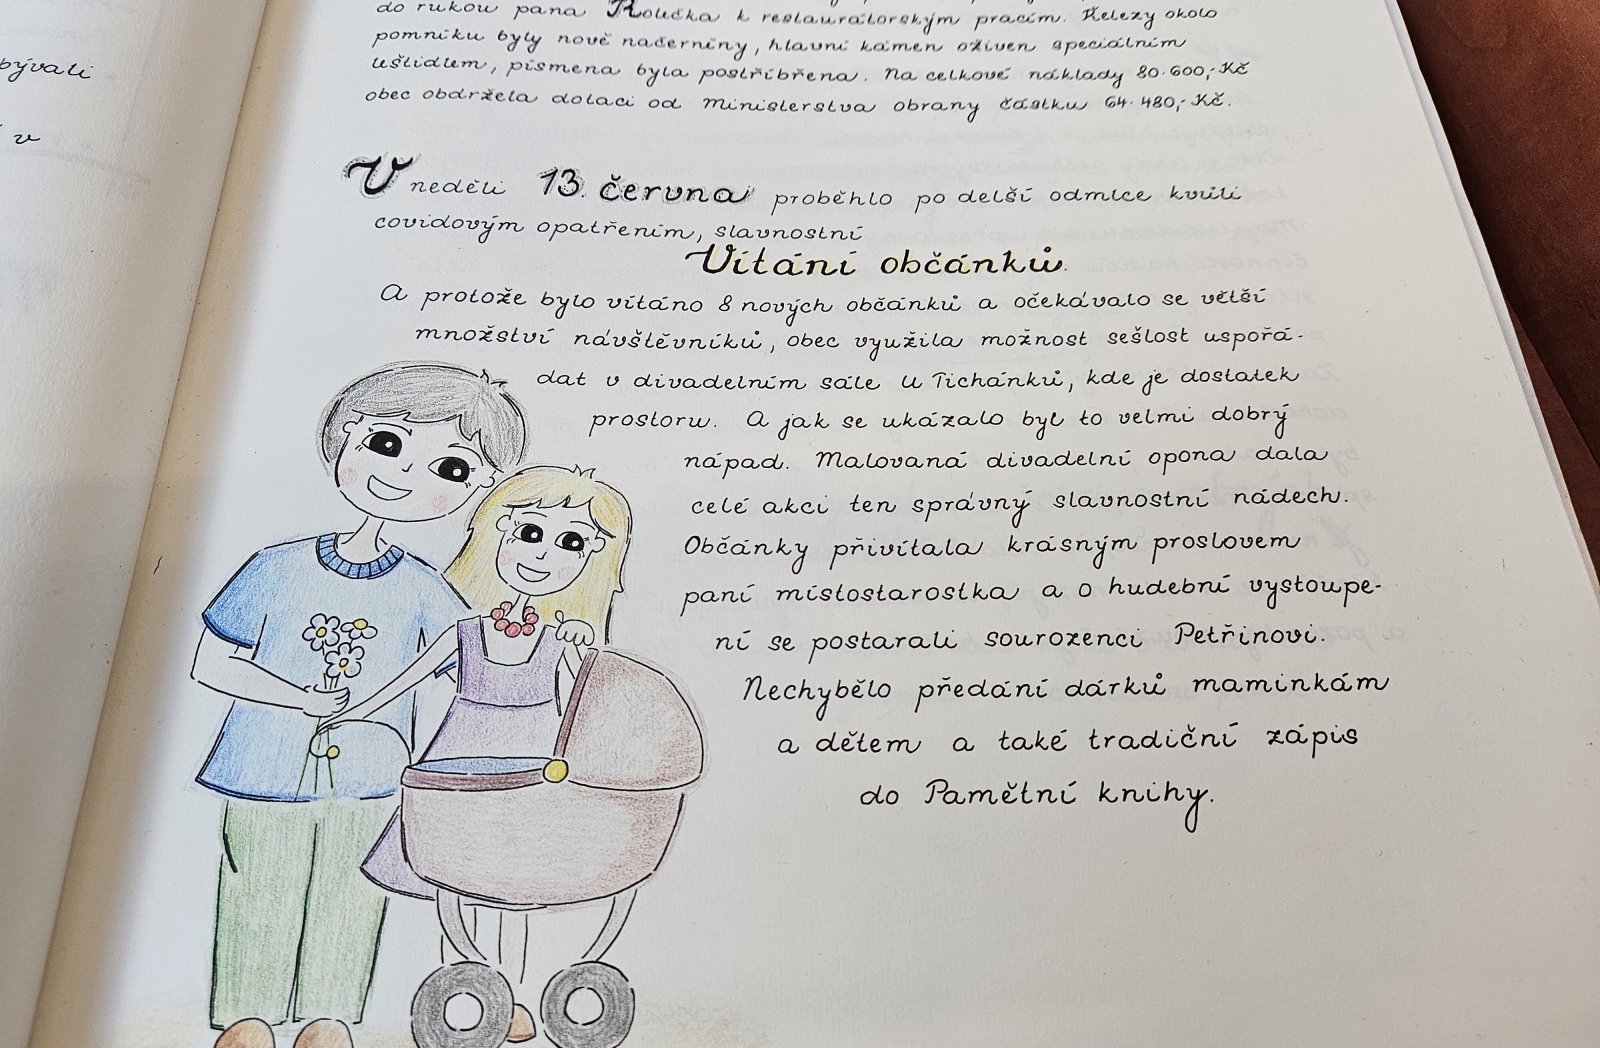 bývali
v
do rukou pana Roučka k restaurátorským pracím. Železy okolo
pomníku byly nově načerněny, hlavní kámen oživen speciálním
leštidlem, písmena byla postříbřena. Na celkové náklady 80.600,-Kč
obec obdržela dotaci od Ministerstva obrany částku 64.480,-Kč.
V neděli 13. června proběhlo po delší odmlce kvůli
covidovým opatřením, slavnostní
Vítání občánků.
A protože bylo vítáno 8 nových občánků a očekávalo se větší
množství návštěvníků, obec využila možnost sešlost uspořá-
dat v divadelním sále U Tichánků, kde je dostatek
prostoru. A jak se ukázalo byl to velmi dobrý
nápad. Malovaná divadelní opona dala
celé akci ten správný slavnostní nádech.
Občánky přivítala krásným proslovem
paní místostarostka a o hudební vystoupe-
ní se postarali sourozenci Petřinovi.
Nechybělo předání dárků maminkám
a dětem a také tradiční zápis
do Pamětní knihy.